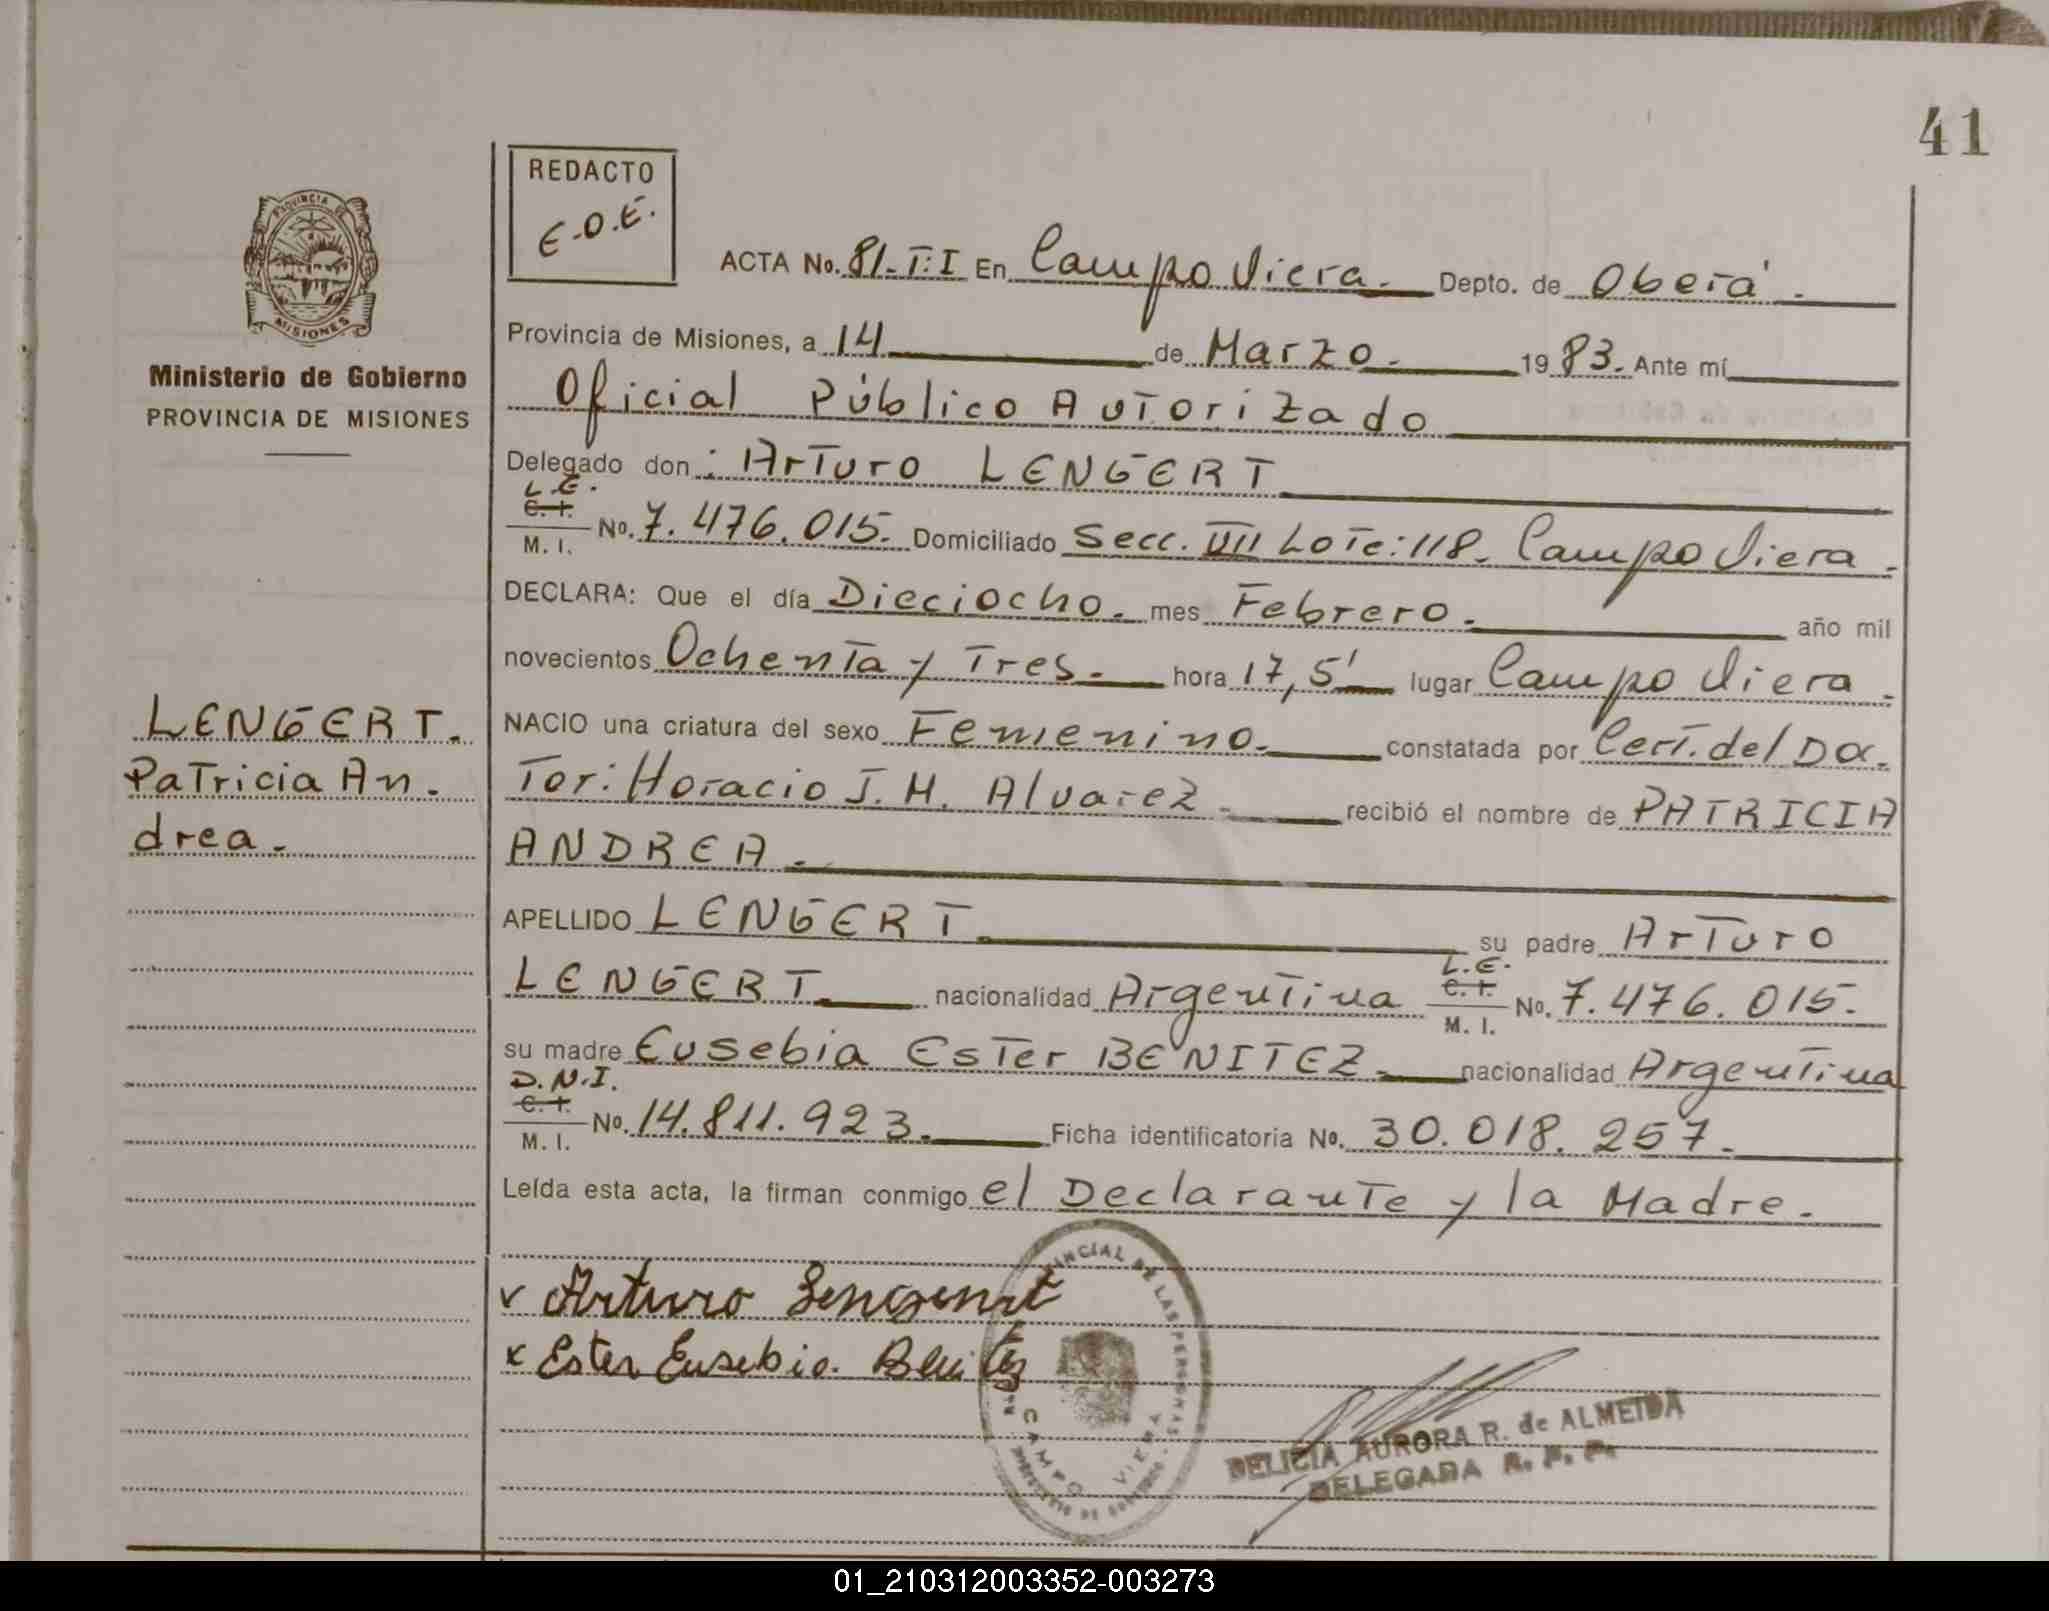 41
REDACTO
E.O.E.
PROVINCIA DE
MISIONES
Ministerio de Gobierno
PROVINCIA DE MISIONES
ACTA No. 81-T:I En Campo Viera. Depto. de Oberá.
Provincia de Misiones, a 14 de Marzo. 1983. Ante mí
Oficial Público Autorizado
Delegado don: Arturo LENGERT
L.E.
C. I.
M. I. No. 7.476.015. Domiciliado Secc. VII Lote: 118. Campo Viera.
DECLARA: Que el día Dieciocho. mes Febrero. año mil
novecientos Ochenta y Tres. hora 17,5' lugar Campo Viera.
NACIO una criatura del sexo Femenino. constatada por Cert. del Doc.
Tor: Horacio J. M. Alvarez. recibió el nombre de PATRICIA
ANDREA.
APELLIDO LENGERT su padre Arturo
L.E.
C. I.
LENGERT nacionalidad Argentina M. I. No. 7.476.015.
su madre Eusebia Ester BENITEZ. nacionalidad Argentina
D.N.I.
C. I.
M. I. No. 14.811.923. Ficha identificatoria No. 30.018.257.
Leída esta acta, la firman conmigo el Declarante y la Madre.
LENGERT.
Patricia An.
drea.
v Arturo Lengert
x Ester Eusebia Benitez
PROVINCIAL DE LAS PERSONAS
CAMPO VIERA
DELICIA AURORA R. de ALMEIDA
DELEGADA R. P. P.
01_210312003352-003273